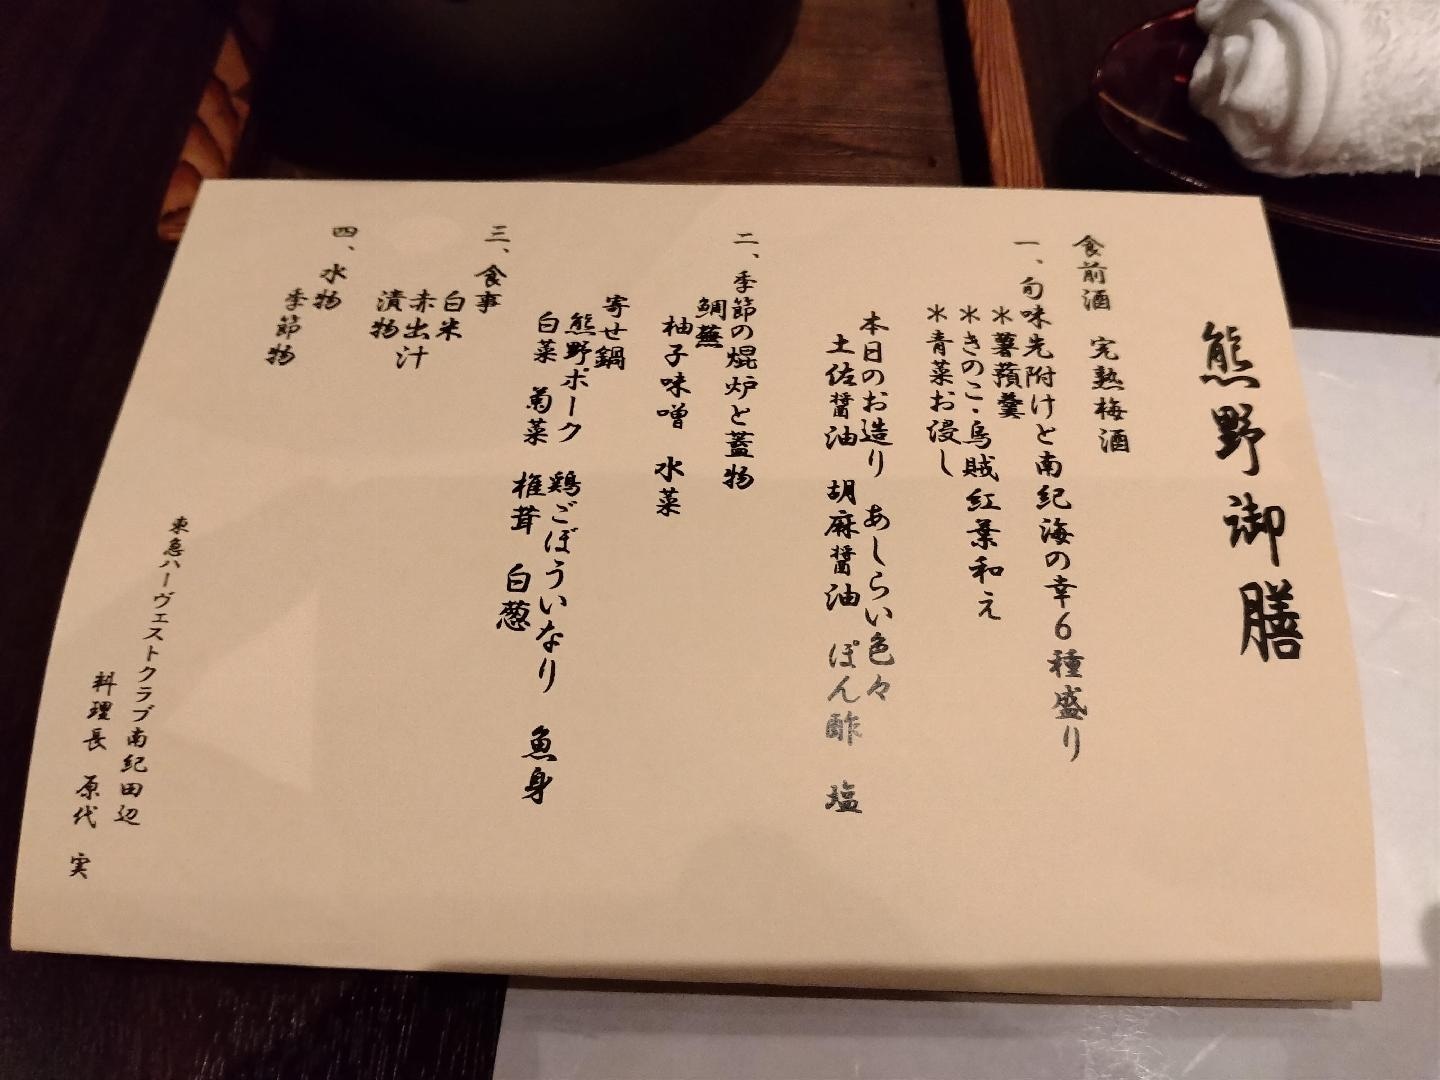 熊野御膳
食前酒 完熟梅酒
一、旬味先附けと南紀海の幸6種盛り
＊薯蕷羹
＊きのこ・烏賊紅葉和え
＊青菜お浸し
本日のお造り あしらい色々
土佐醤油 胡麻醤油 ぽん酢 塩
二、季節の焜炉と蓋物
鯛蕪
柚子味噌 水菜
寄せ鍋
熊野ポーク 鶏ごぼういなり 魚身
白菜 菊菜 椎茸 白葱
三、食事
白米
赤出汁
漬物
四、水物
季節物
東急ハーヴェストクラブ南紀田辺
料理長 原代 実